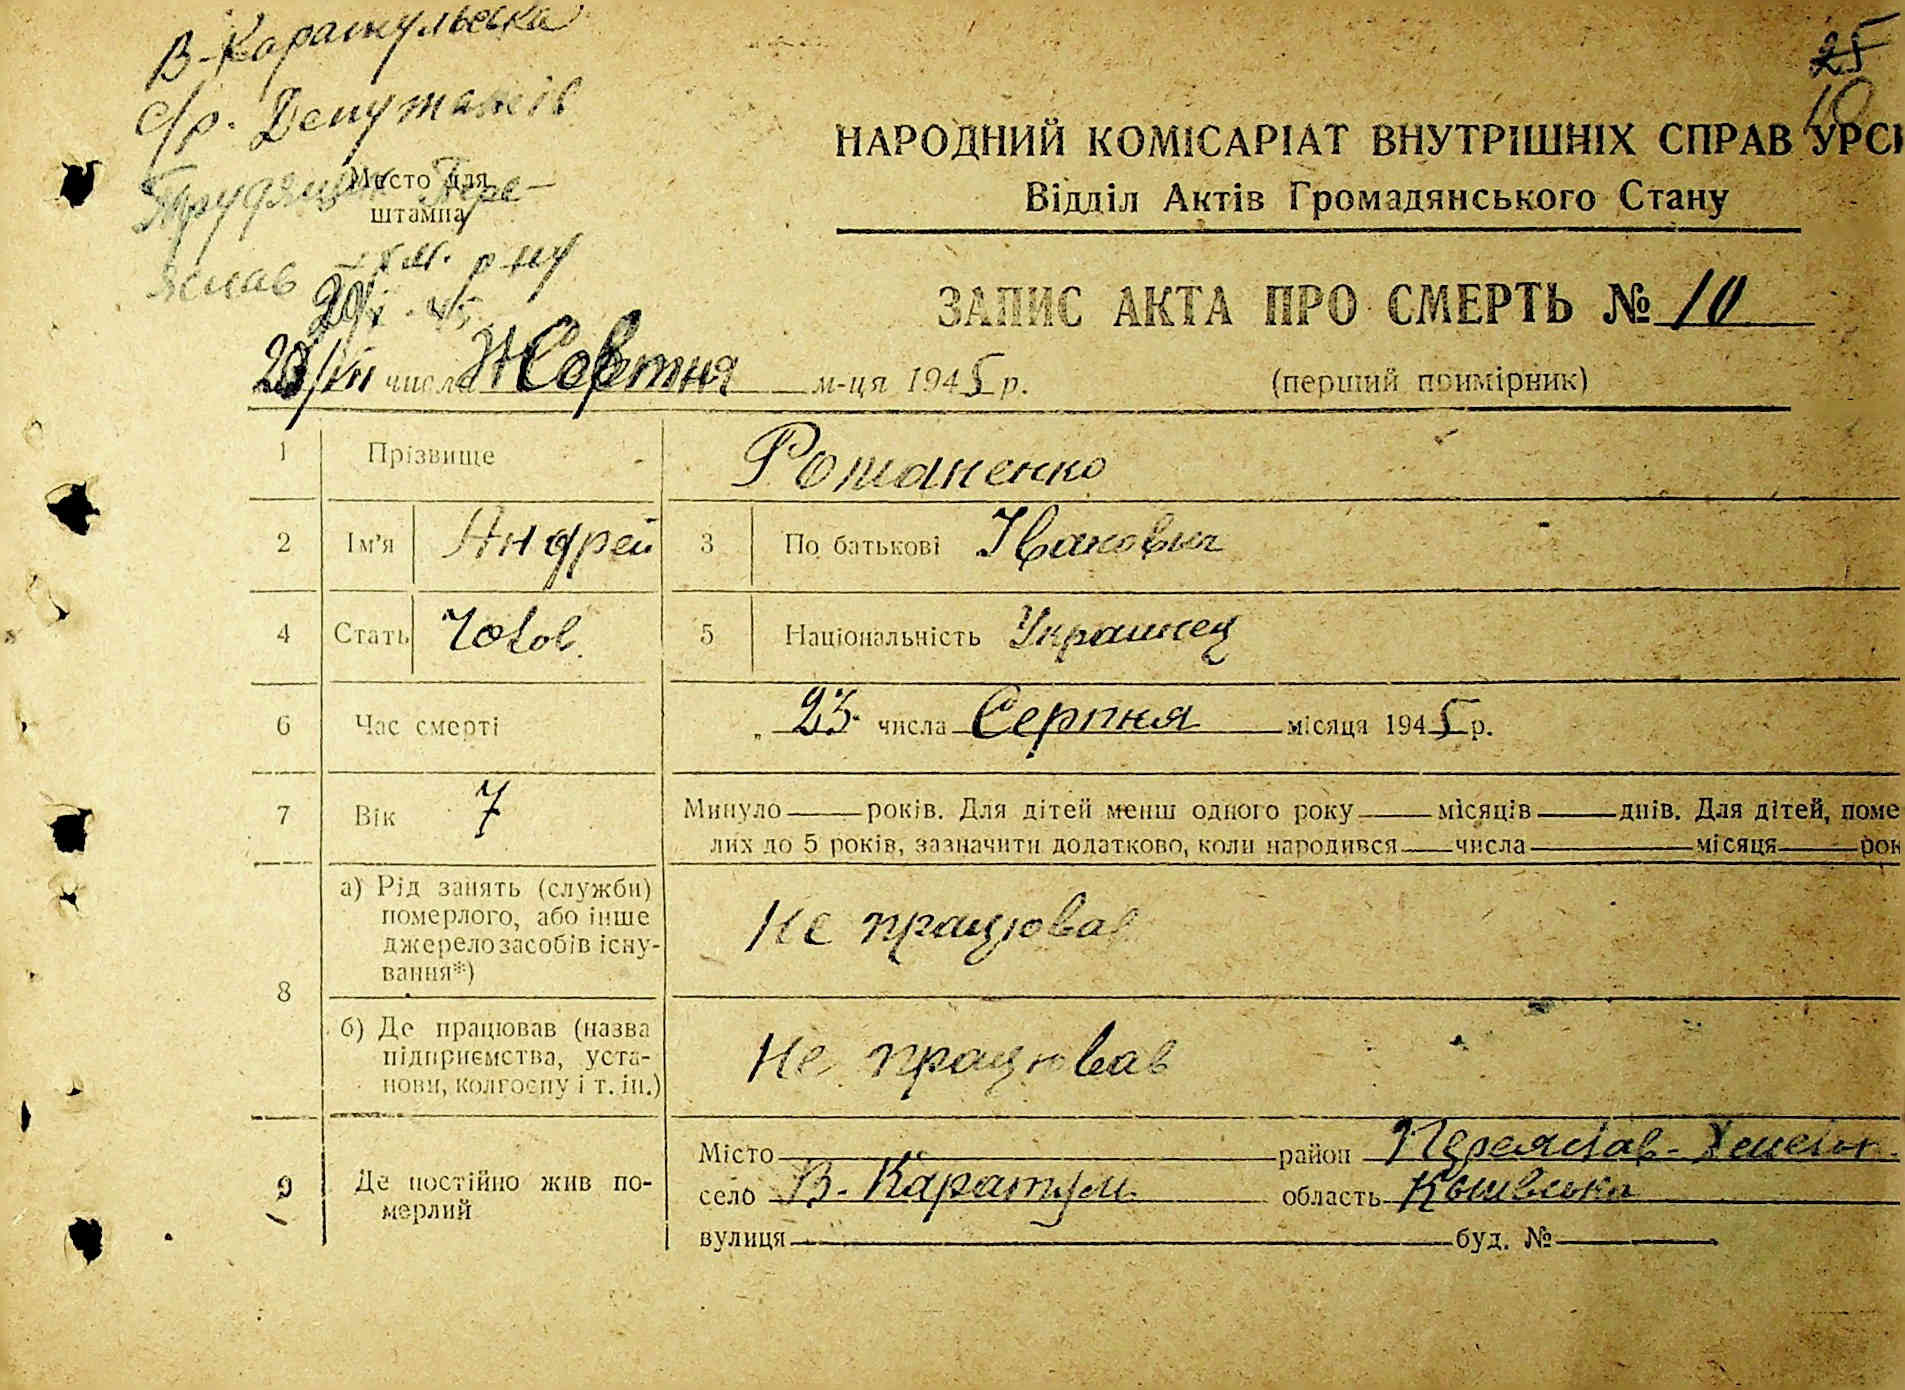 В-Каратульська
с/р. Депутатів
Трудящих Пере-
яслав - Хм. р-ну
Место для
штампа
25
10
НАРОДНИЙ КОМІСАРІАТ ВНУТРІШНІХ СПРАВ УРСР
Відділ Актів Громадянського Стану
ЗАПИС АКТА ПРО СМЕРТЬ № 10
(перший примірник)
числа Жовтня м-ця 1945 р.
1 Прізвище Романенко
2 Ім'я Андрей 3 По батькові Іванович
4 Стать Чолов. 5 Національність Украинец
6 Час смерті „ 23 числа Серпня місяця 1945 р.
7 Вік 7 Минуло ____ років. Для дітей менш одного року ____ місяців ____ днів. Для дітей, поме
лих до 5 років, зазначити додатково, коли народився ____ числа ____ місяця ____ рок
8 а) Рід занять (служби)
померлого, або інше
джерело засобів існу-
вання*)
Не працював
б) Де працював (назва
підприємства, уста-
нови, колгоспу і т. ін.)
Не працював
9 Де постійно жив по-
мерлий
Місто ____ район Переяслав-Хмельн.
село В. Каратули область Кыивська
вулиця ____ буд. № ____